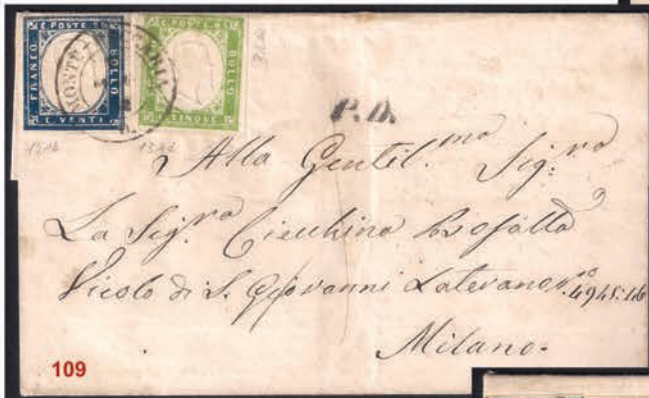 C. POSTE 20
FRANCO
BOLLO
C. VENTI
C. POSTE 5
BOLLO
C. CINQUE
P.D.
Alla Gentil.ma Sig.ra
La Sig.ra Cicchina
Vicolo di S. Giovanni Laterano N.o 4945:46
Milano.
109